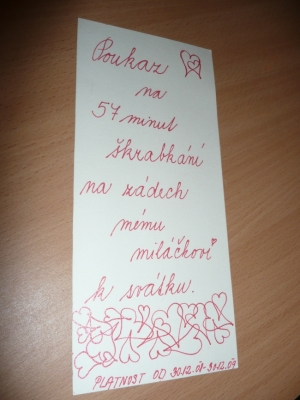 Poukaz
na
57 minut
škrabkání
na zádech
mému
miláčkovi
k svátku.
PLATNOST OD 30.12.08-30.12.09